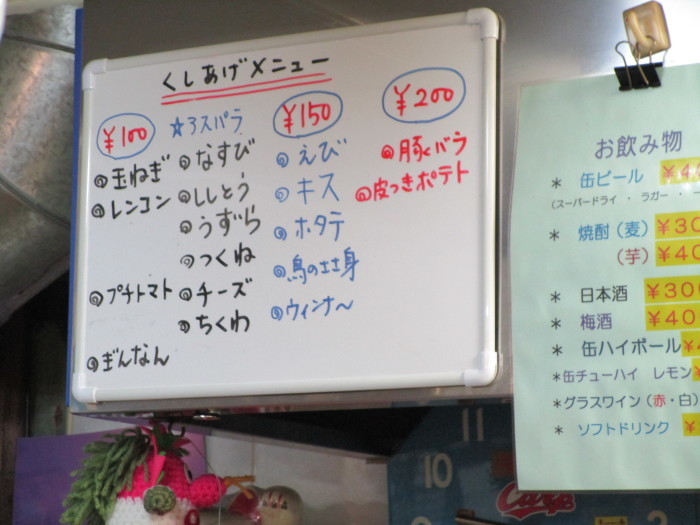 くしあげメニュー
¥100
☆アスパラ
玉ねぎ
なすび
レンコン
ししとう
うずら
つくね
プチトマト
チーズ
ちくわ
ぎんなん
¥150
えび
キス
ホタテ
鳥のささ身
ウィンナ〜
¥200
豚バラ
皮つきポテト
お飲み物
* 缶ビール
(スーパードライ ・ ラガー ・
* 焼酎(麦)
(芋)
* 日本酒
* 梅酒
* 缶ハイボール
*缶チューハイ レモン
*グラスワイン(赤・白)
* ソフトドリンク
11
10
Carp